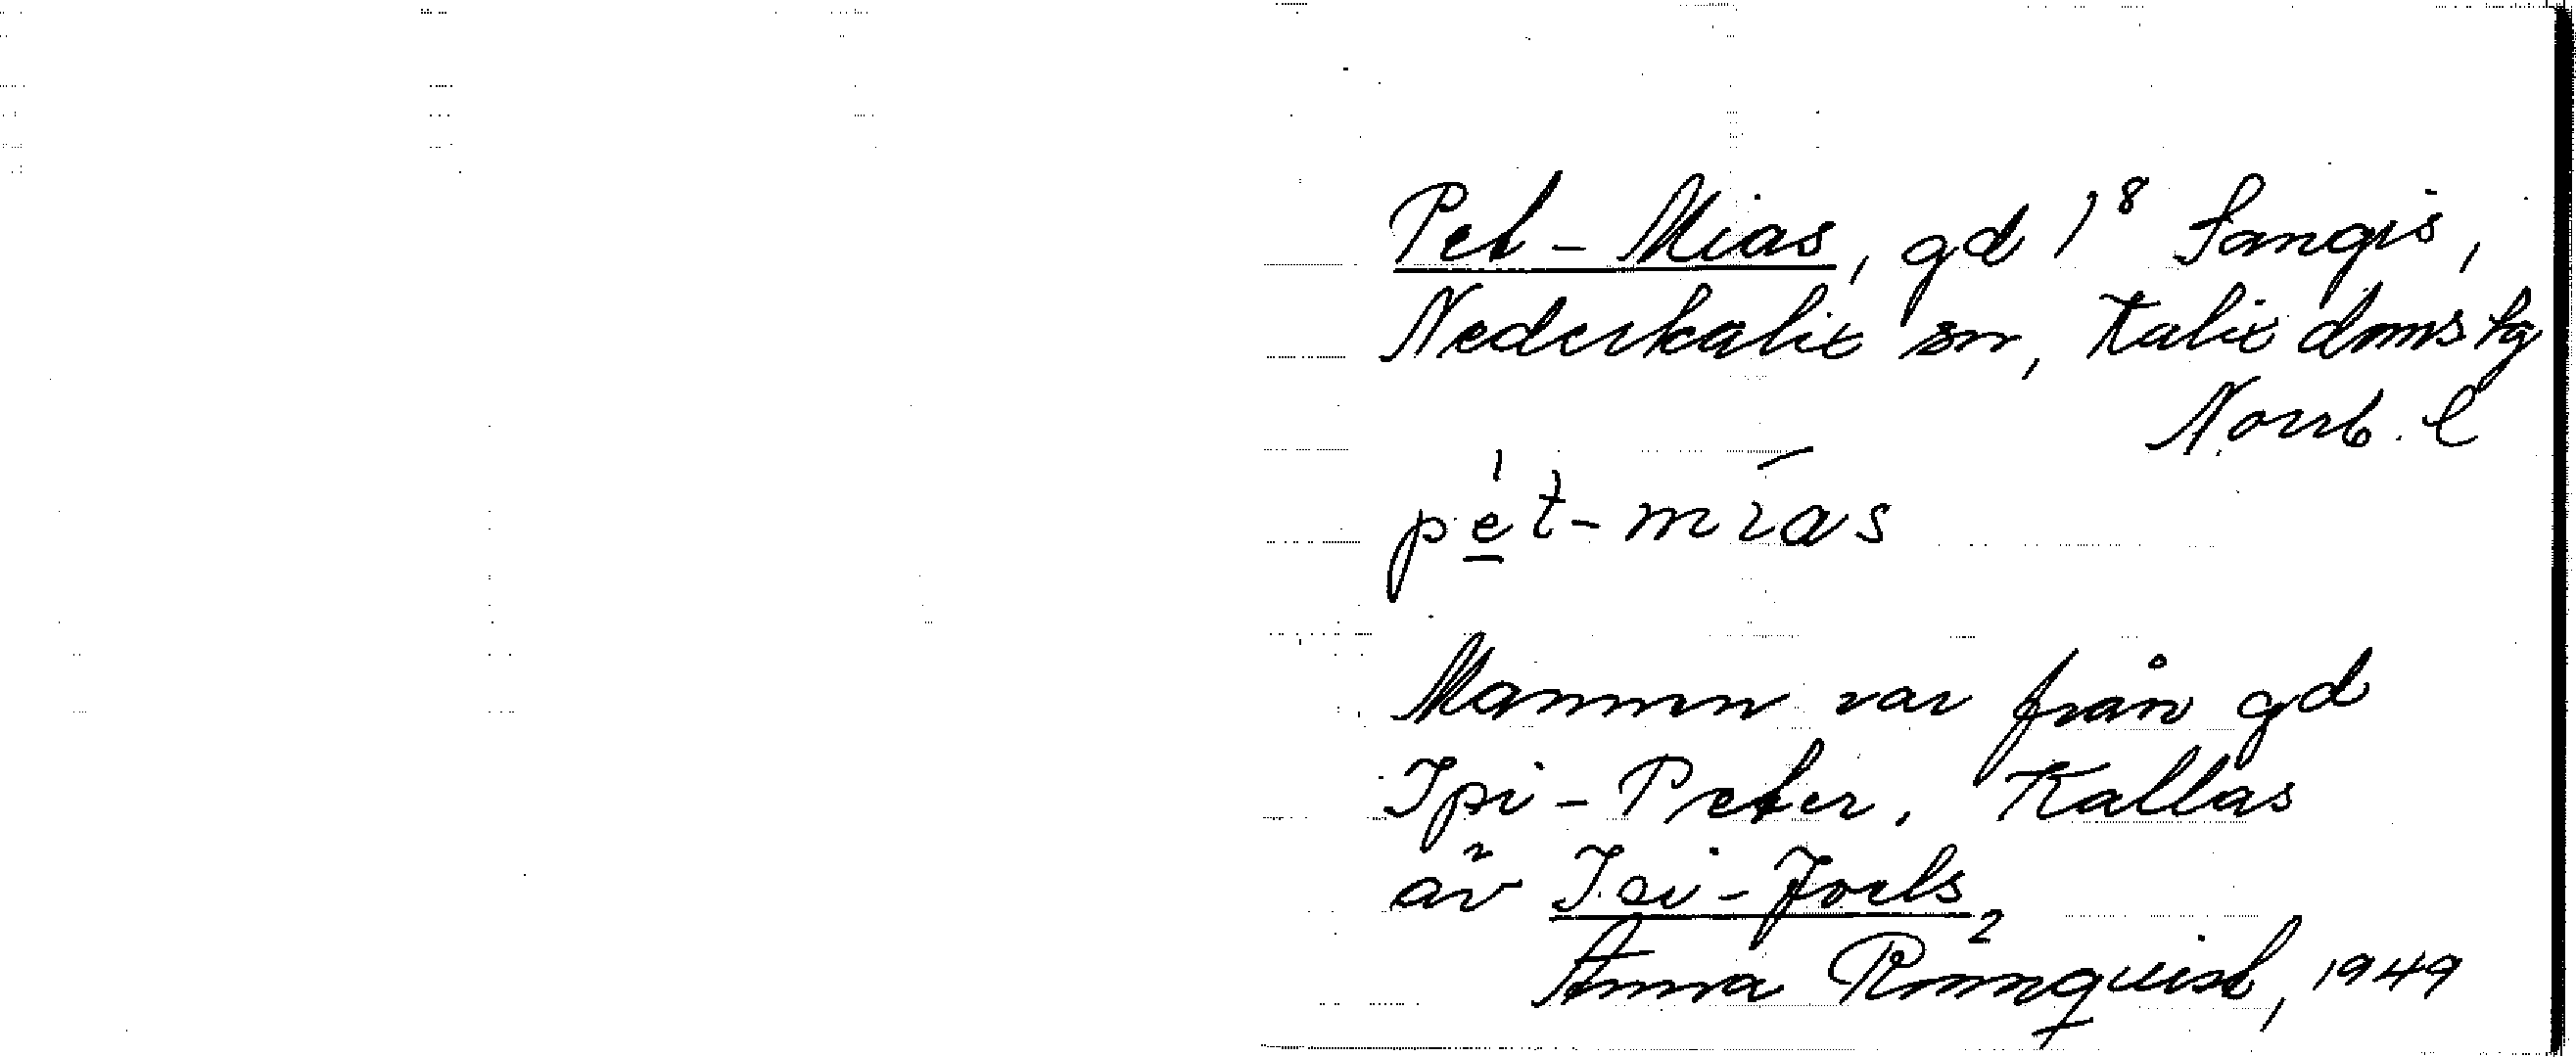 Pet-Mias, gd 1⁸ Sangis,
Nederkalix sn, Kalix domsg
Norrb. l
pe̲t-mias
Mannen var från gd
Ipi-Peter. Kallas
äv Isi-Joels₂
Anna Rönnquist, 1949